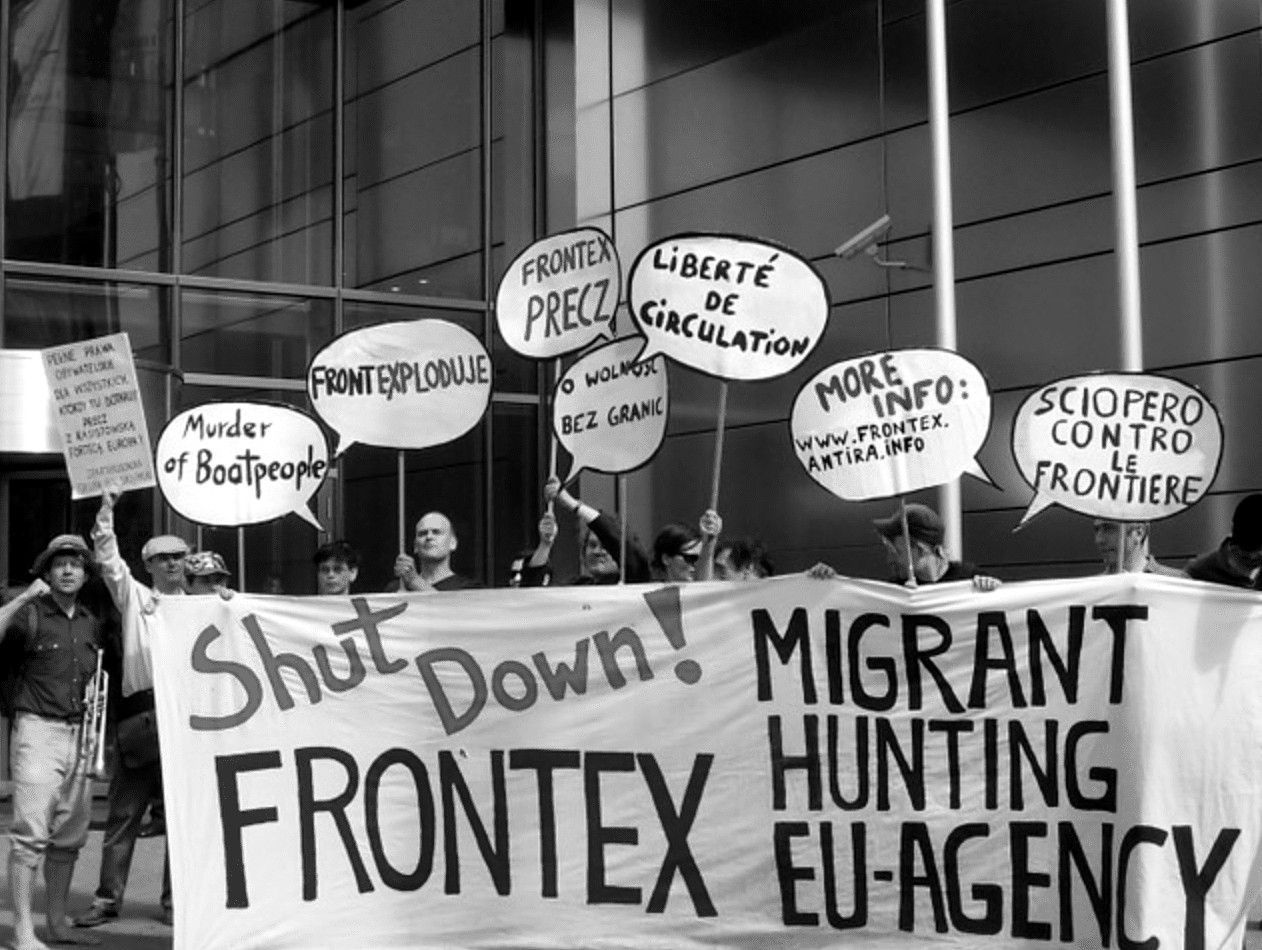 PEŁNE PRAWA
OBYWATELSKIE
DLA WSZYSTKICH,
KTÓRZY TU DOTARLI!
PRECZ
Z RASISTOWSKĄ
FORTECĄ EUROPA!
Murder
of Boatpeople
FRONTEXPLODUJE
FRONTEX
PRECZ
O WOLNOŚĆ
BEZ GRANIC
LiBERTÉ
DE
CiRCULATiON
MORE
INFO:
WWW.FRONTEX.
ANTIRA.INFO
SCIOPERO
CONTRO
LE
FRONTIERE
Shut Down!
FRONTEX
MIGRANT
HUNTING
EU-AGENCY